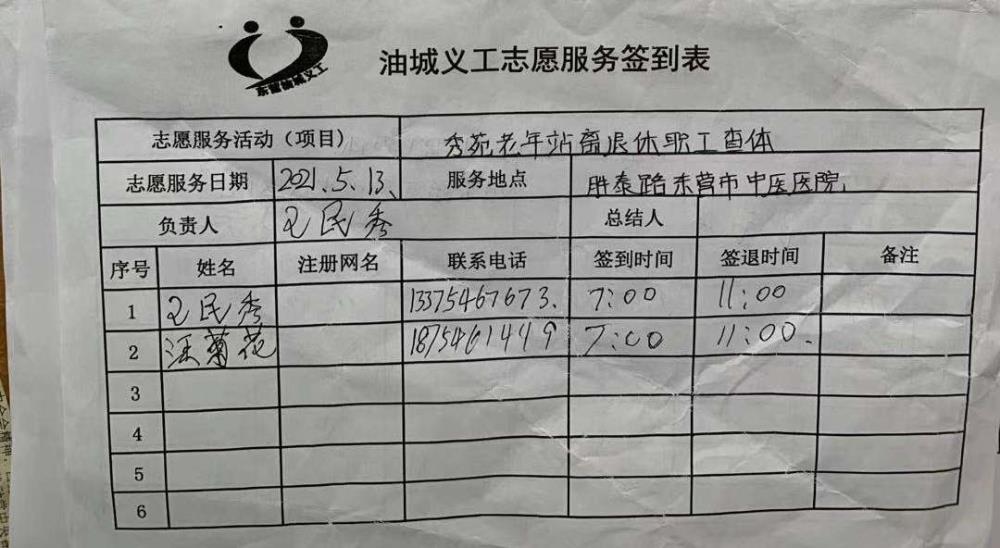 东营油城义工
油城义工志愿服务签到表
志愿服务活动（项目） 秀苑老年站离退休职工查体
志愿服务日期 2021.5.13、 服务地点 胜泰路东营市中医医院.
负责人 王民秀 总结人
序号 姓名 注册网名 联系电话 签到时间 签退时间 备注
1 王民秀 13375467673. 7:00 11:00
2 汪菊花 18754614449 7:00 11:00.
3
4
5
6